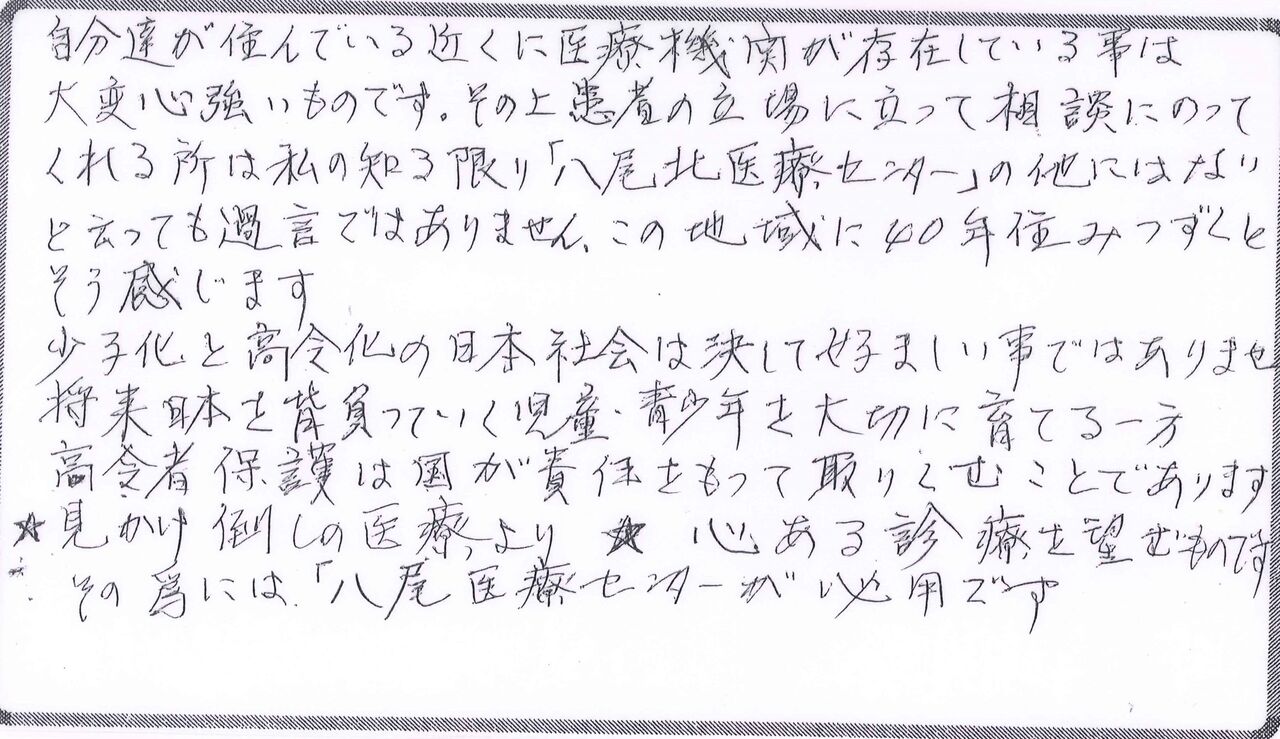 自分達が住んでいる近くに医療機関が存在している事は
大変心強いものです。その上患者の立場に立って相談にのって
くれる所は私の知る限り「八尾北医療センター」の他にはない
と云っても過言ではありません、この地域に40年住みつずくと
そう感じます
少子化と高令化の日本社会は決して好ましい事ではありませ
将来日本を背負っていく児童・青少年を大切に育てる一方
高令者保護は国が責任をもって取りくむことであります
★見かけ倒しの医療より ★心ある診療を望むものです
その為には「八尾医療センターが必用です